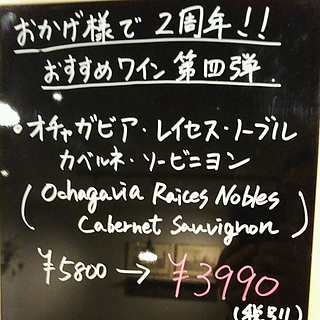 おかげ様で 2周年!!
おすすめワイン 第四弾.
• オチャガビア・レイセス・ノーブル
カベルネ・ソービニヨン
(Ochagavia Raices Nobles
Cabernet Sauvignon)
¥5800 → ¥3990
(税別)